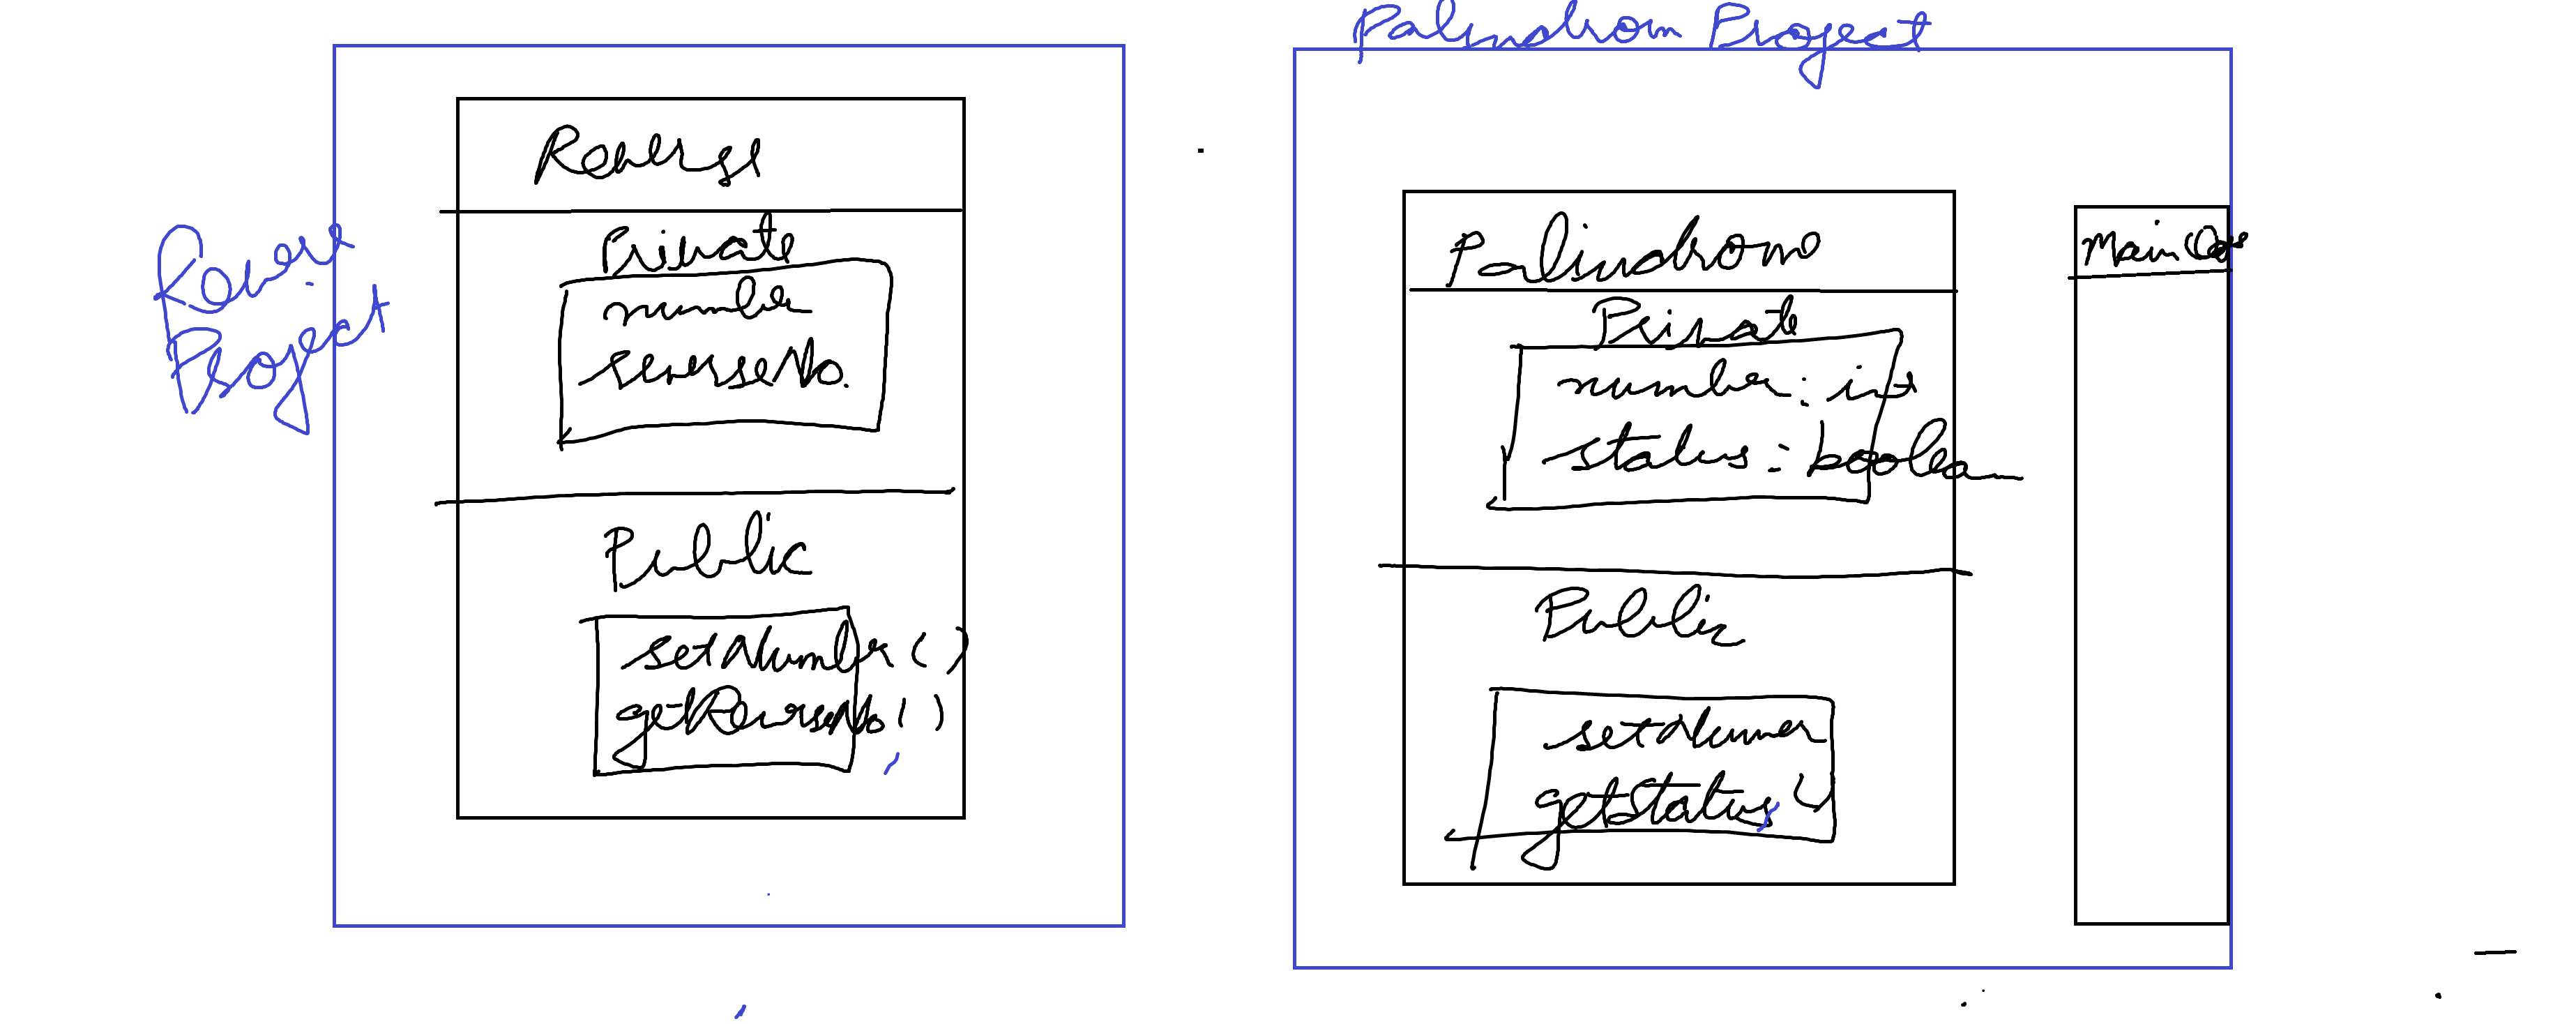 Reverse
Project
Reverse
Private
number
reverseNo.
Public
setNumber()
getReverseNo()
Palindrom Project
Palindrom
Private
number: int
status: boolean
Public
setNumer
getStatus()
Main Class